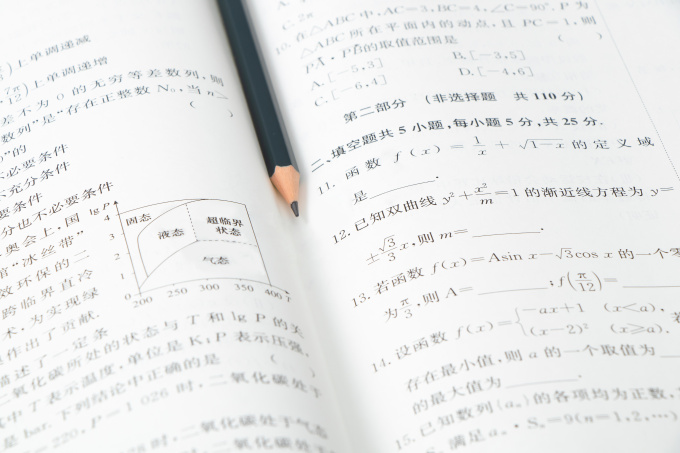 )上单调递减
7π/12)上单调递增
差不为 0 的无穷等差数列，则
数列”是“存在正整数 N₀，当 n>
)”的 (    )
不必要条件
不充分条件
要条件
分也不必要条件
奥会上，国
馆“冰丝带”
效环保的二
跨临界直冷
术，为实现绿
作出了贡献.
描述了一定条
二氧化碳所处的状态与 T 和 lg P 的关
其中 T 表示温度，单位是 K；P 表示压强，
是 bar. 下列结论中正确的是 (    )
=220，P=1 026 时，二氧化碳处于
时，二氧化碳处于气态
lg P
4
3
2
1
0
固态
液态
超临界
状态
气态
200 250 300 350 400 T
C. 2π
在△ABC 中，AC=3，BC=4，∠C=90°. P 为
10. △ABC 所在平面内的动点，且 PC=1，则
PA·PB的取值范围是 (    )
A. [−5,3] B. [−3,5]
C. [−6,4] D. [−4,6]
第二部分 (非选择题 共 110 分)
二、填空题共 5 小题，每小题 5 分，共 25 分.
11. 函数 f(x)=1/x+√(1−x) 的定义域
是______.
12. 已知双曲线 y²+x²/m=1 的渐近线方程为 y=
±√3/3 x，则 m=______.
13. 若函数 f(x)=Asin x−√3cos x 的一个零
为π/3，则 A=______；f(π/12)=
14. 设函数 f(x)={−ax+1 (x<a),
(x−2)² (x≥a). 若
存在最小值，则 a 的一个取值为
的最大值为______.
15. 已知数列{aₙ}的各项均为正数，
满足 aₙ·Sₙ=9(n=1,2,…)